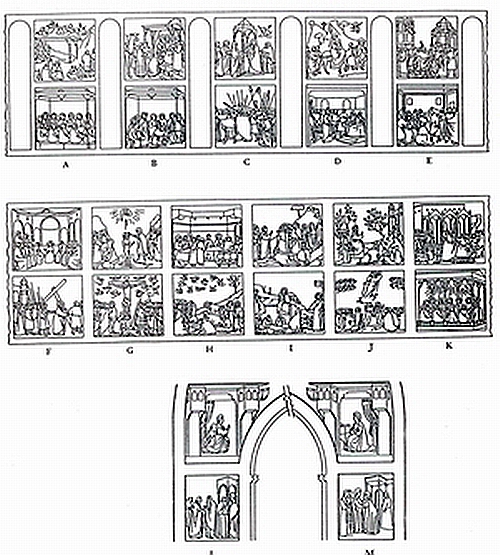 A B C D E
F G H I J K
L M